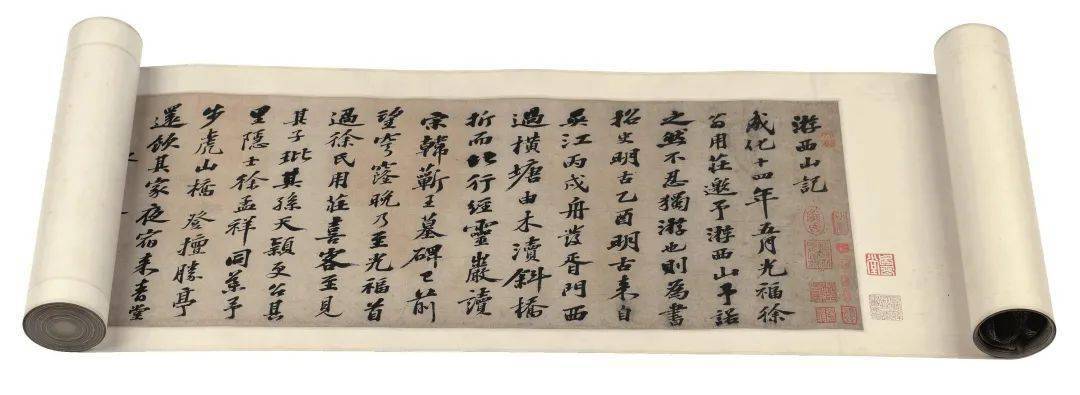 游西山記
成化十四年五月光福徐
翁用莊邀予游西山予諾
之然不忍獨游也則為書
招史明古乙酉明古来自
吴江丙戌舟發胥門西
過橫塘由木瀆斜橋
折而北行經靈巖讀
宋韓蘄王墓碑已前
望穹窿晚乃至光福首
過徐氏用莊喜客至見
其子玭其孫天穎其
里隱士徐孟祥同
步虎山橋登擅勝亭
還飲其家夜宿来青堂